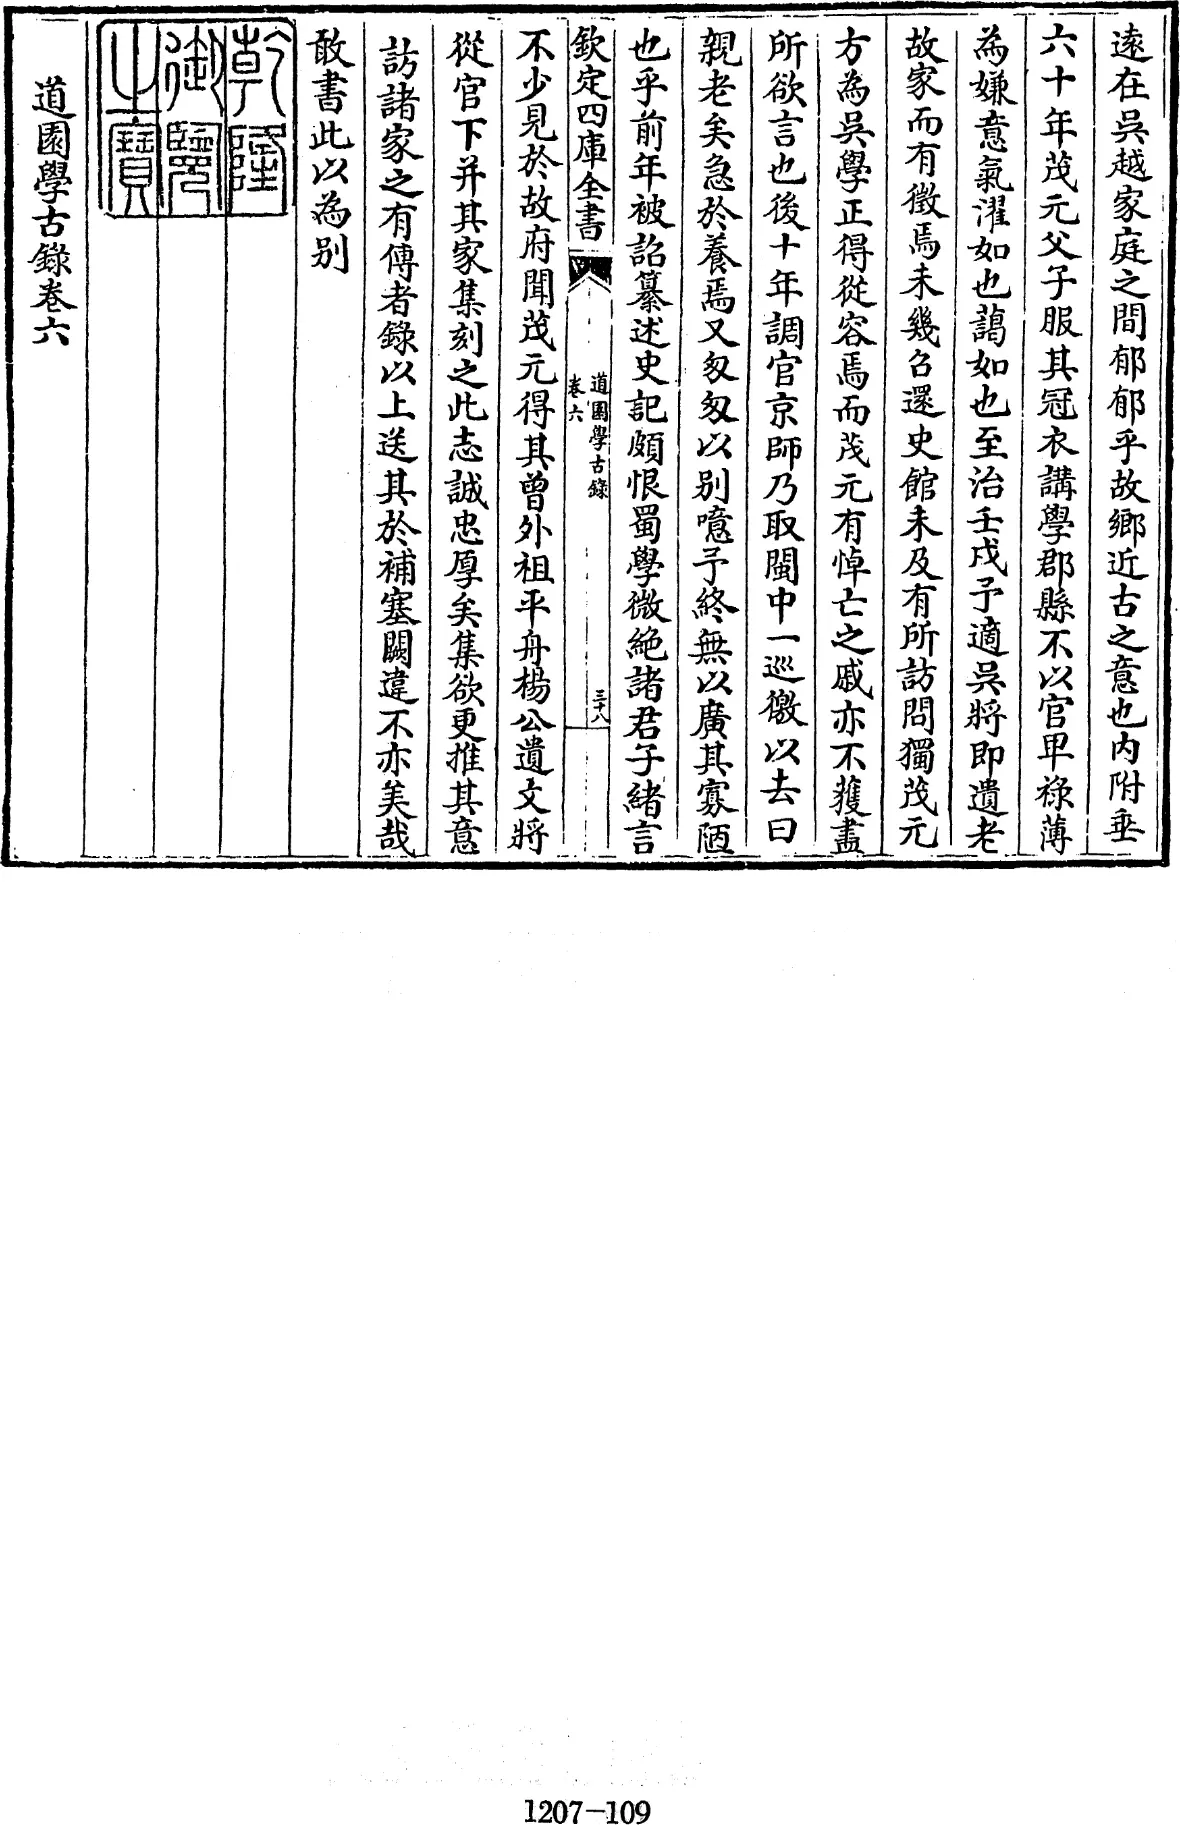 遠在吳越家庭之間郁郁乎故鄉近古之意也内附垂
六十年茂元父子服其冠衣講學郡縣不以官卑祿薄
為嫌意氣濯如也藹如也至治壬戌予適吳將即遺老
故家而有徵焉未幾召還史館未及有所訪問獨茂元
方為吳學正得從容焉而茂元有悼亡之戚亦不獲盡
所欲言也後十年調官京師乃取閩中一巡徼以去曰
親老矣急於養焉又匆匆以别噫予終無以廣其寡陋
也乎前年被詔纂述史記頗恨蜀學微絶諸君子緒言
欽定四庫全書
道園學古錄
卷六
三十八
不少見於故府聞茂元得其曾外祖平舟楊公遺文將
從官下并其家集刻之此志誠忠厚矣集欲更推其意
訪諸家之有傳者錄以上送其於補塞闕違不亦美哉
敢書此以為别
乾隆
御覽
之寶
道園學古錄卷六
1207-109